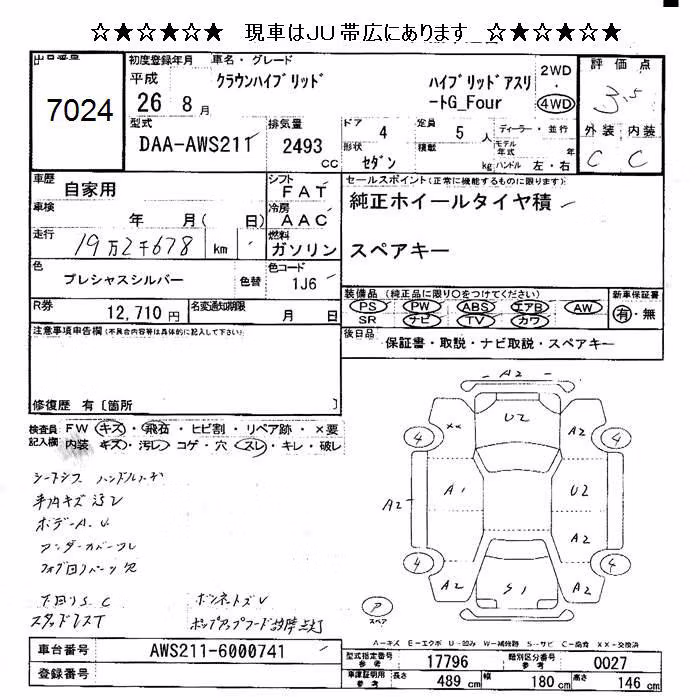 ☆★☆★☆★ 現車はJU帯広にあります ☆★☆★☆★
出品番号 初度登録年月 車名・グレード 評価点
7024
平成 26 8月 クラウンハイブリッド ハイブリッドアスリートG_Four 2WD・4WD 3.5
型式 排気量 ドア 4 定員 5人 ディーラー・並行 外装 内装
DAA-AWS211 2493cc 形状 セダン 積載 kg モデル年式 年式 ハンドル 左・右 C C
車歴 自家用 シフト FAT セールスポイント(正常に機能するものに限ります)
車検 年 月( 日) 冷房 AAC 純正ホイールタイヤ積
走行 19万2千678 km 燃料 ガソリン スペアキー
色 プレシャスシルバー 色替 色コード 1J6
装備品(純正品に限り○をつけてください) 新車保証書
PS PW ABS エアB AW 有・無
SR ナビ TV カワ
R券 12,710円 名変通知期限 月 日
後日品 保証書・取説・ナビ取説・スペアキー
注意事項申告欄(不具合内容等は具体的に記入して下さい)
修復歴 有〔箇所 〕
検査員記入欄 FW キズ・飛石・ヒビ割・リペア跡・×要
内装 キズ・汚レ・コゲ・穴・スレ・キレ・破レ
ボデーA.U
アンダーカバーワレ
下回りS.C
スタッドレスT
A2
U2
×× A2
4 4
A1 U2
A2
A2
4 4
A2 S1 A2
ア
スペア
A-キズ E-エクボ U-凹み W-補修跡 S-サビ C-腐食 XX-交換済
車台番号 AWS211-6000741
登録番号
型式指定番号 参考 17796 類別区分番号 参考 0027
車庫証明用 参考 長さ 489cm 幅 180cm 高さ 146cm